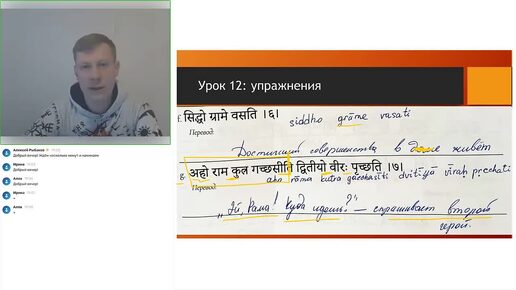 Урок 12: упражнения
सिद्धो ग्रामे वसति ।६।
siddho grāme vasati
Перевод:
Достигший совершенства в доме живёт
g. अहो राम कुत्र गच्छसीति द्वितीयो वीरः पृच्छति ।७।
aho rāma kutra gacchasīti dvitīyo vīraḥ pṛcchati
Перевод:
„Эй, Рама! Куда идешь?" – спрашивает второй
герой.
Добрый вечер! Ждём несколько минут и начинаем
Ирина
Добрый вечер!
Анна
Добрый вечер!
Ирина
+
Анна
+